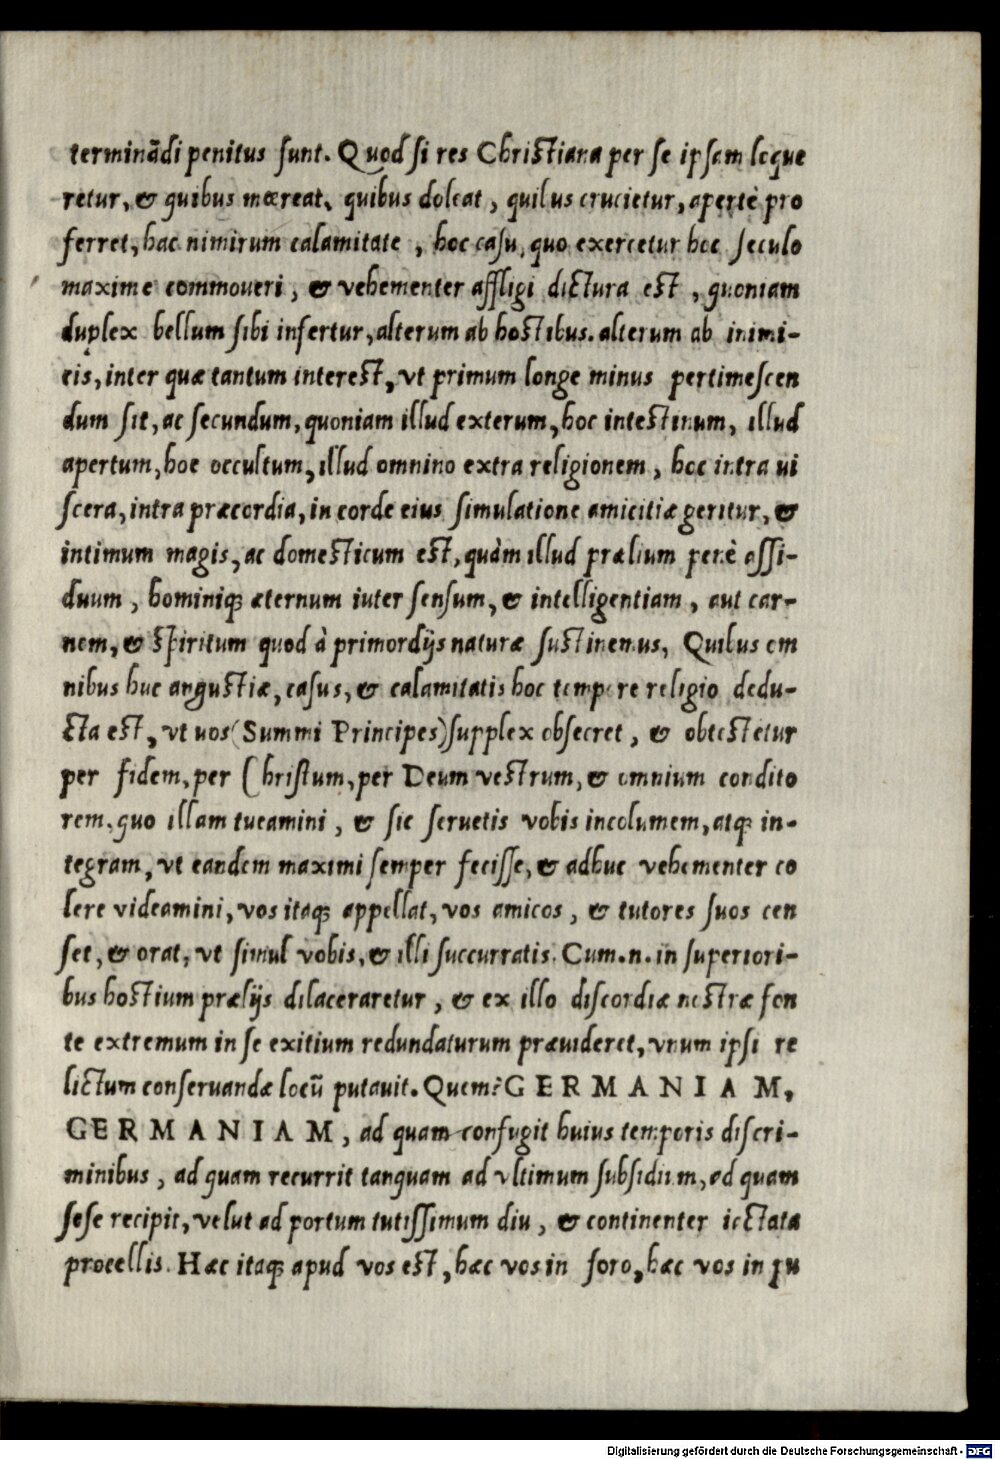 terminādi penitus sunt. Quod si res Christiana per se ipsam loque
retur, & quibus mœreat, quibus doleat, quibus crucietur, apertè pro
ferret, hac nimirum calamitate, hoc casu, quo exercetur hoc seculo
maxime commoueri, & vehementer affligi dictura est, quoniam
duplex bellum sibi infertur, alterum ab hostibus. alterum ab inimi-
cis, inter quæ tantum interest, vt primum longe minus pertimescen
dum sit, ac secundum, quoniam illud exterum, hoc intestinum, illud
apertum, hoc occultum, illud omnino extra religionem, hoc intra ui
scera, intra præcordia, in corde eius simulatione amicitiæ geritur, &
intimum magis, ac domesticum est, quàm illud prælium penè assi-
duum, hominiq; æternum iuter sensum, & intelligentiam, aut car-
nem, & spiritum quod à primordijs naturæ sustinemus, Quibus om
nibus huc angustiæ, casus, & calamitatis hoc tempore religio dedu-
cta est, vt uos (Summi Principes) supplex obsecret, & obtestetur
per fidem, per Christum, per Deum vestrum, & omnium condito
rem, quo illam tueamini, & sic seruetis vobis incolumem, atq; in-
tegram, vt eandem maximi semper fecisse, & adhuc vehementer co
lere videamini, vos itaq; appellat, vos amicos, & tutores suos cen
set, & orat, vt simul vobis, & illi succurratis. Cum .n. in superiori-
bus hostium prælijs dilaceraretur, & ex illo discordiæ nostræ fon
te extremum in se exitium redundaturum præuideret, vnum ipsi re
lictum conseruandæ locū putauit. Quem? GERMANIAM,
GERMANIAM, ad quam confugit huius temporis discri-
minibus, ad quam recurrit tanquam ad vltimum subsidium, ad quam
sese recipit, velut ad portum tutissimum diu, & continenter iactata
procellis. Hæc itaq; apud vos est, hæc vos in foro, hæc vos in pu
Digitalisierung gefördert durch die Deutsche Forschungsgemeinschaft - DFG